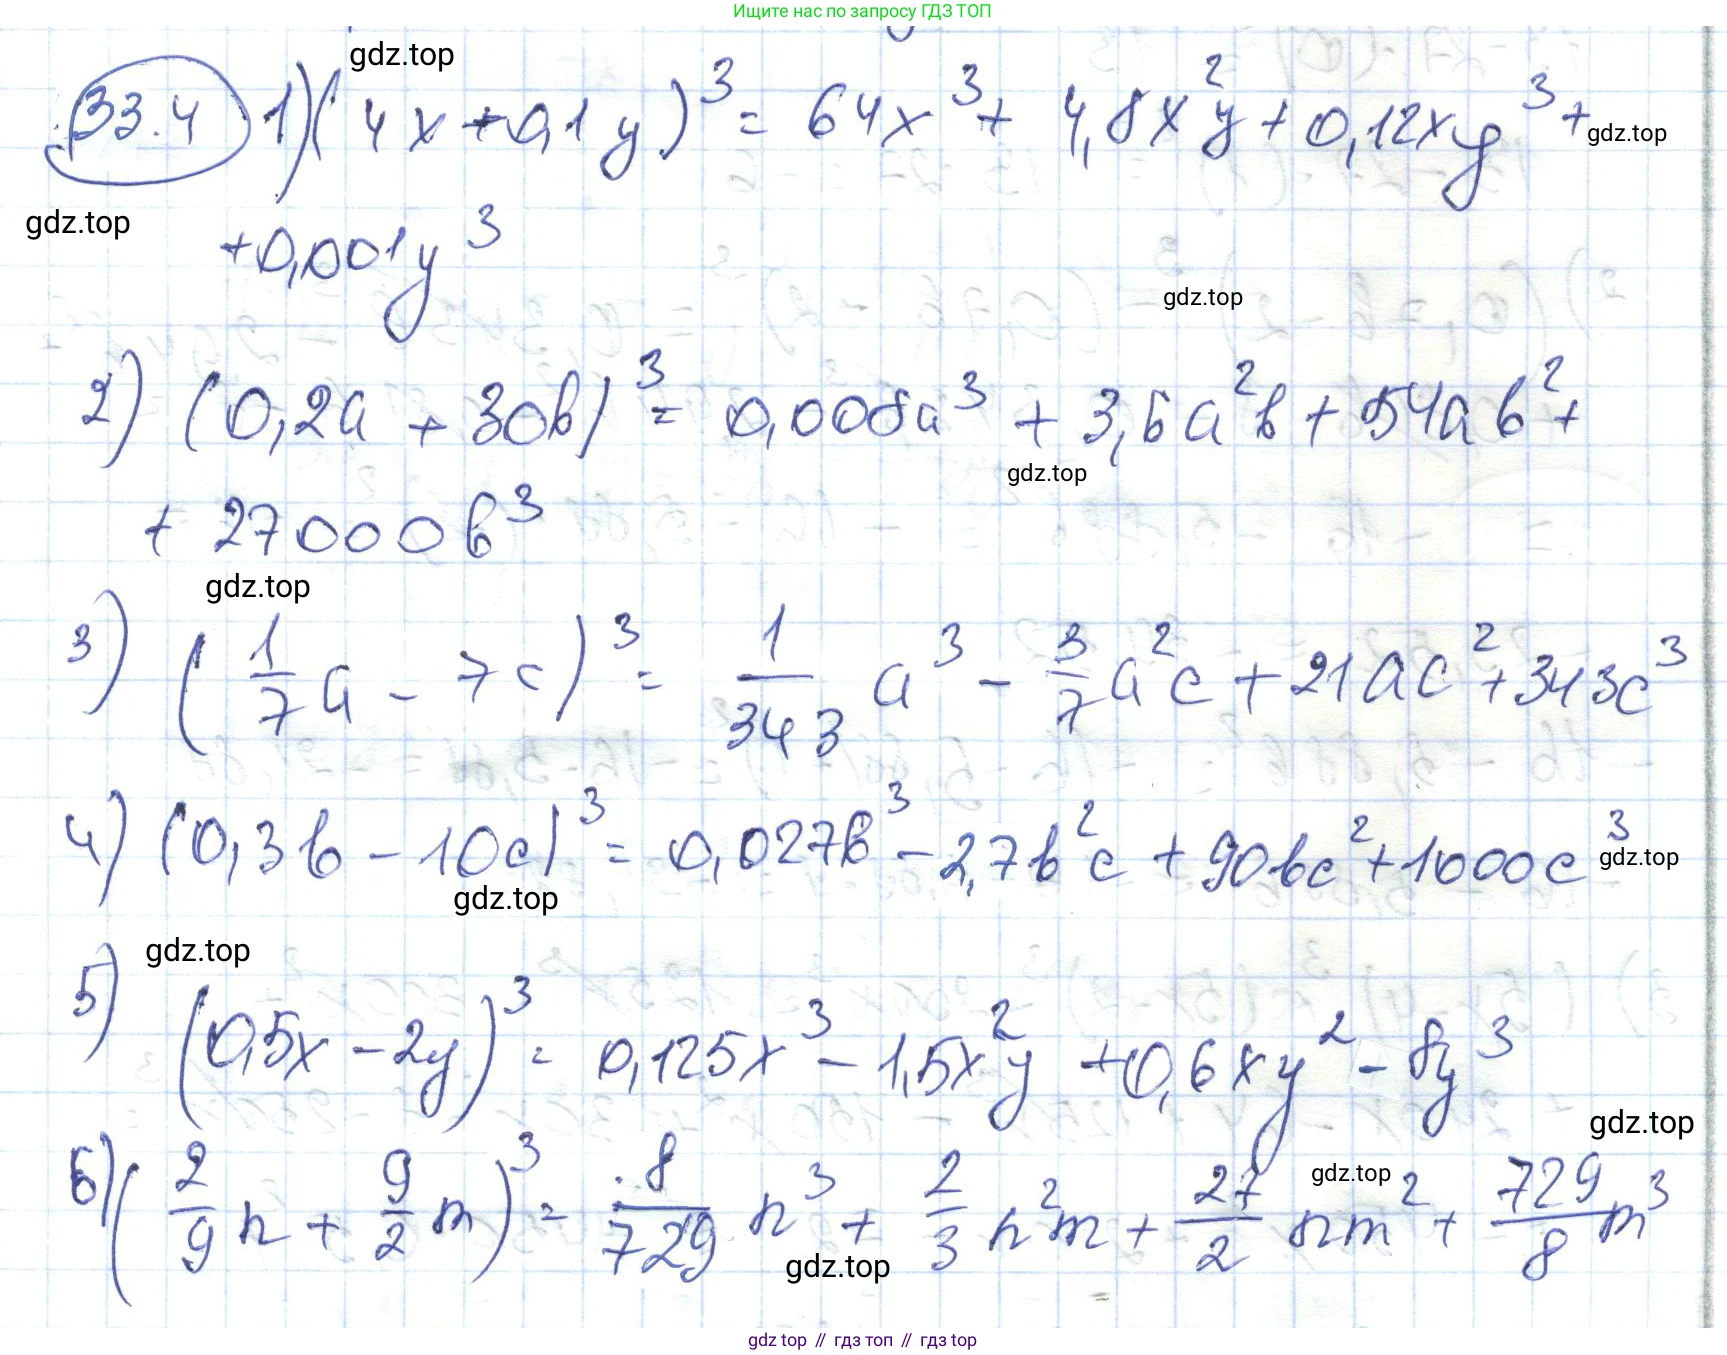 Ищите нас по запросу ГДЗ ТОП
gdz.top
33.4 1) (4x + 0,1y)³ = 64x³ + 4,8x²y + 0,12xy³ +
gdz.top
gdz.top
+ 0,001y³
gdz.top
2) (0,2a + 30b)³ = 0,008a³ + 3,6a²b + 54ab² +
gdz.top
+ 27000b³
gdz.top
3) (1/7 a - 7c)³ = 1/343 a³ - 3/7 a²c + 21ac² + 343c³
4) (0,3b - 10c)³ = 0,027b³ - 2,7b²c + 90bc² + 1000c³
gdz.top
gdz.top
gdz.top
5) (0,5x - 2y)³ = 0,125x³ - 1,5x²y + 0,6xy² - 8y³
gdz.top
6) (2/9 n + 9/2 m)³ = 8/729 n³ + 2/3 n²m + 27/2 nm² + 729/8 m³
gdz.top
gdz.top
gdz top // гдз топ // гдз top